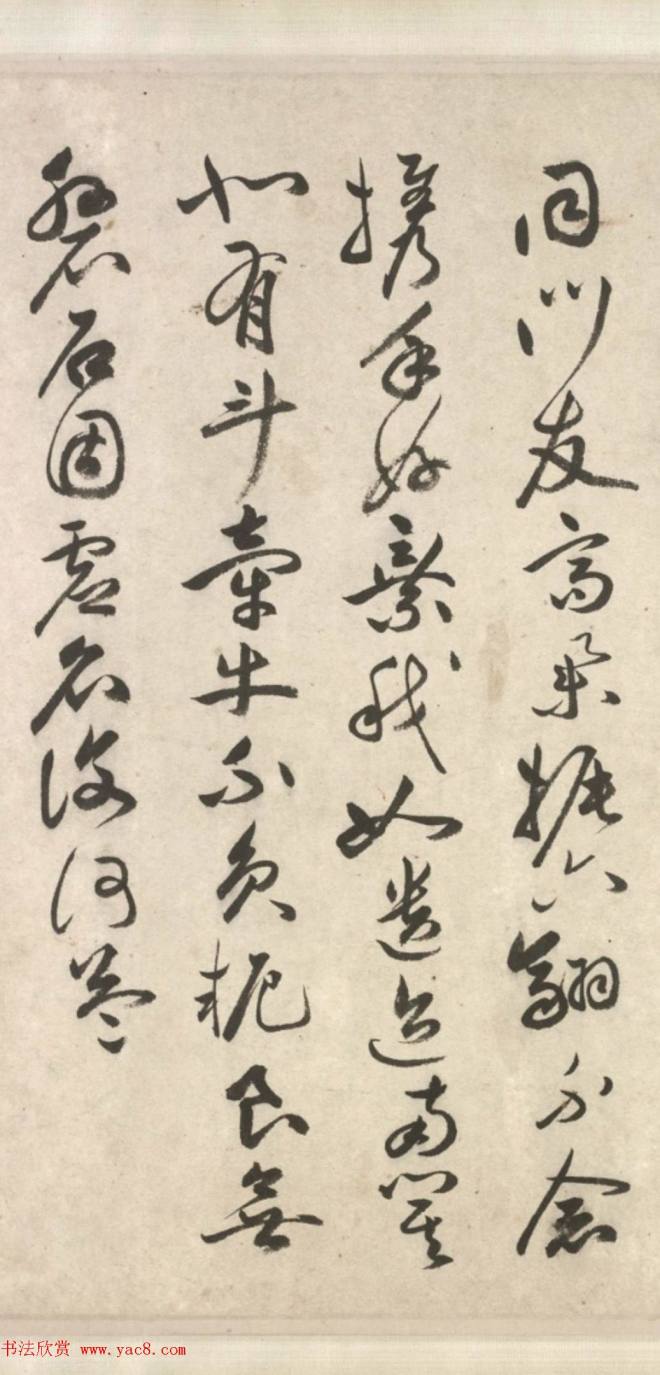 同門友高舉振六翮不念
携手好棄我如遺迹南箕
北有斗牽牛不負軛良無
盤石固虚名復何益
书法欣赏 www.yac8.com